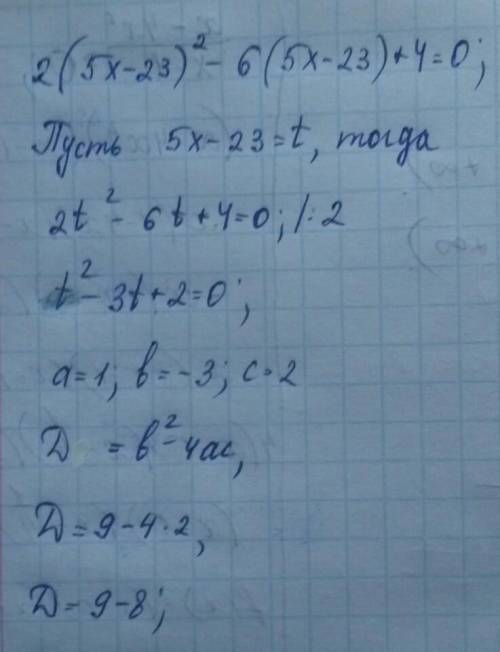 2(5x-23)² - 6(5x-23)+4=0;
Пусть 5x-23=t, тогда
2t² - 6t+4=0; /:2
t² - 3t+2=0;
a=1; b=-3; c=2
D = b² - 4ac,
D=9-4·2,
D=9-8;